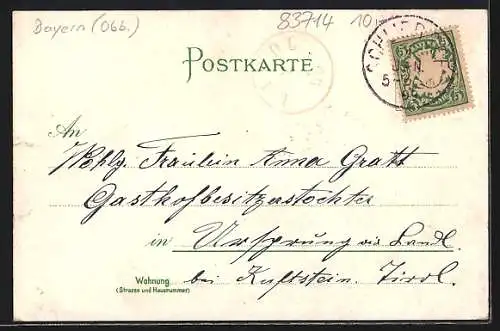 Bayern (Obb.) 83714 10,-
POSTKARTE
SCHLIER
JUN.
5
5
An
Wohlg. Fräulein Anna Gratt
Gasthofbesitzerstochter
in Ursprung via Landl
Wohnung bei Kufstein. Tirol.
(Strasse und Hausnummer)